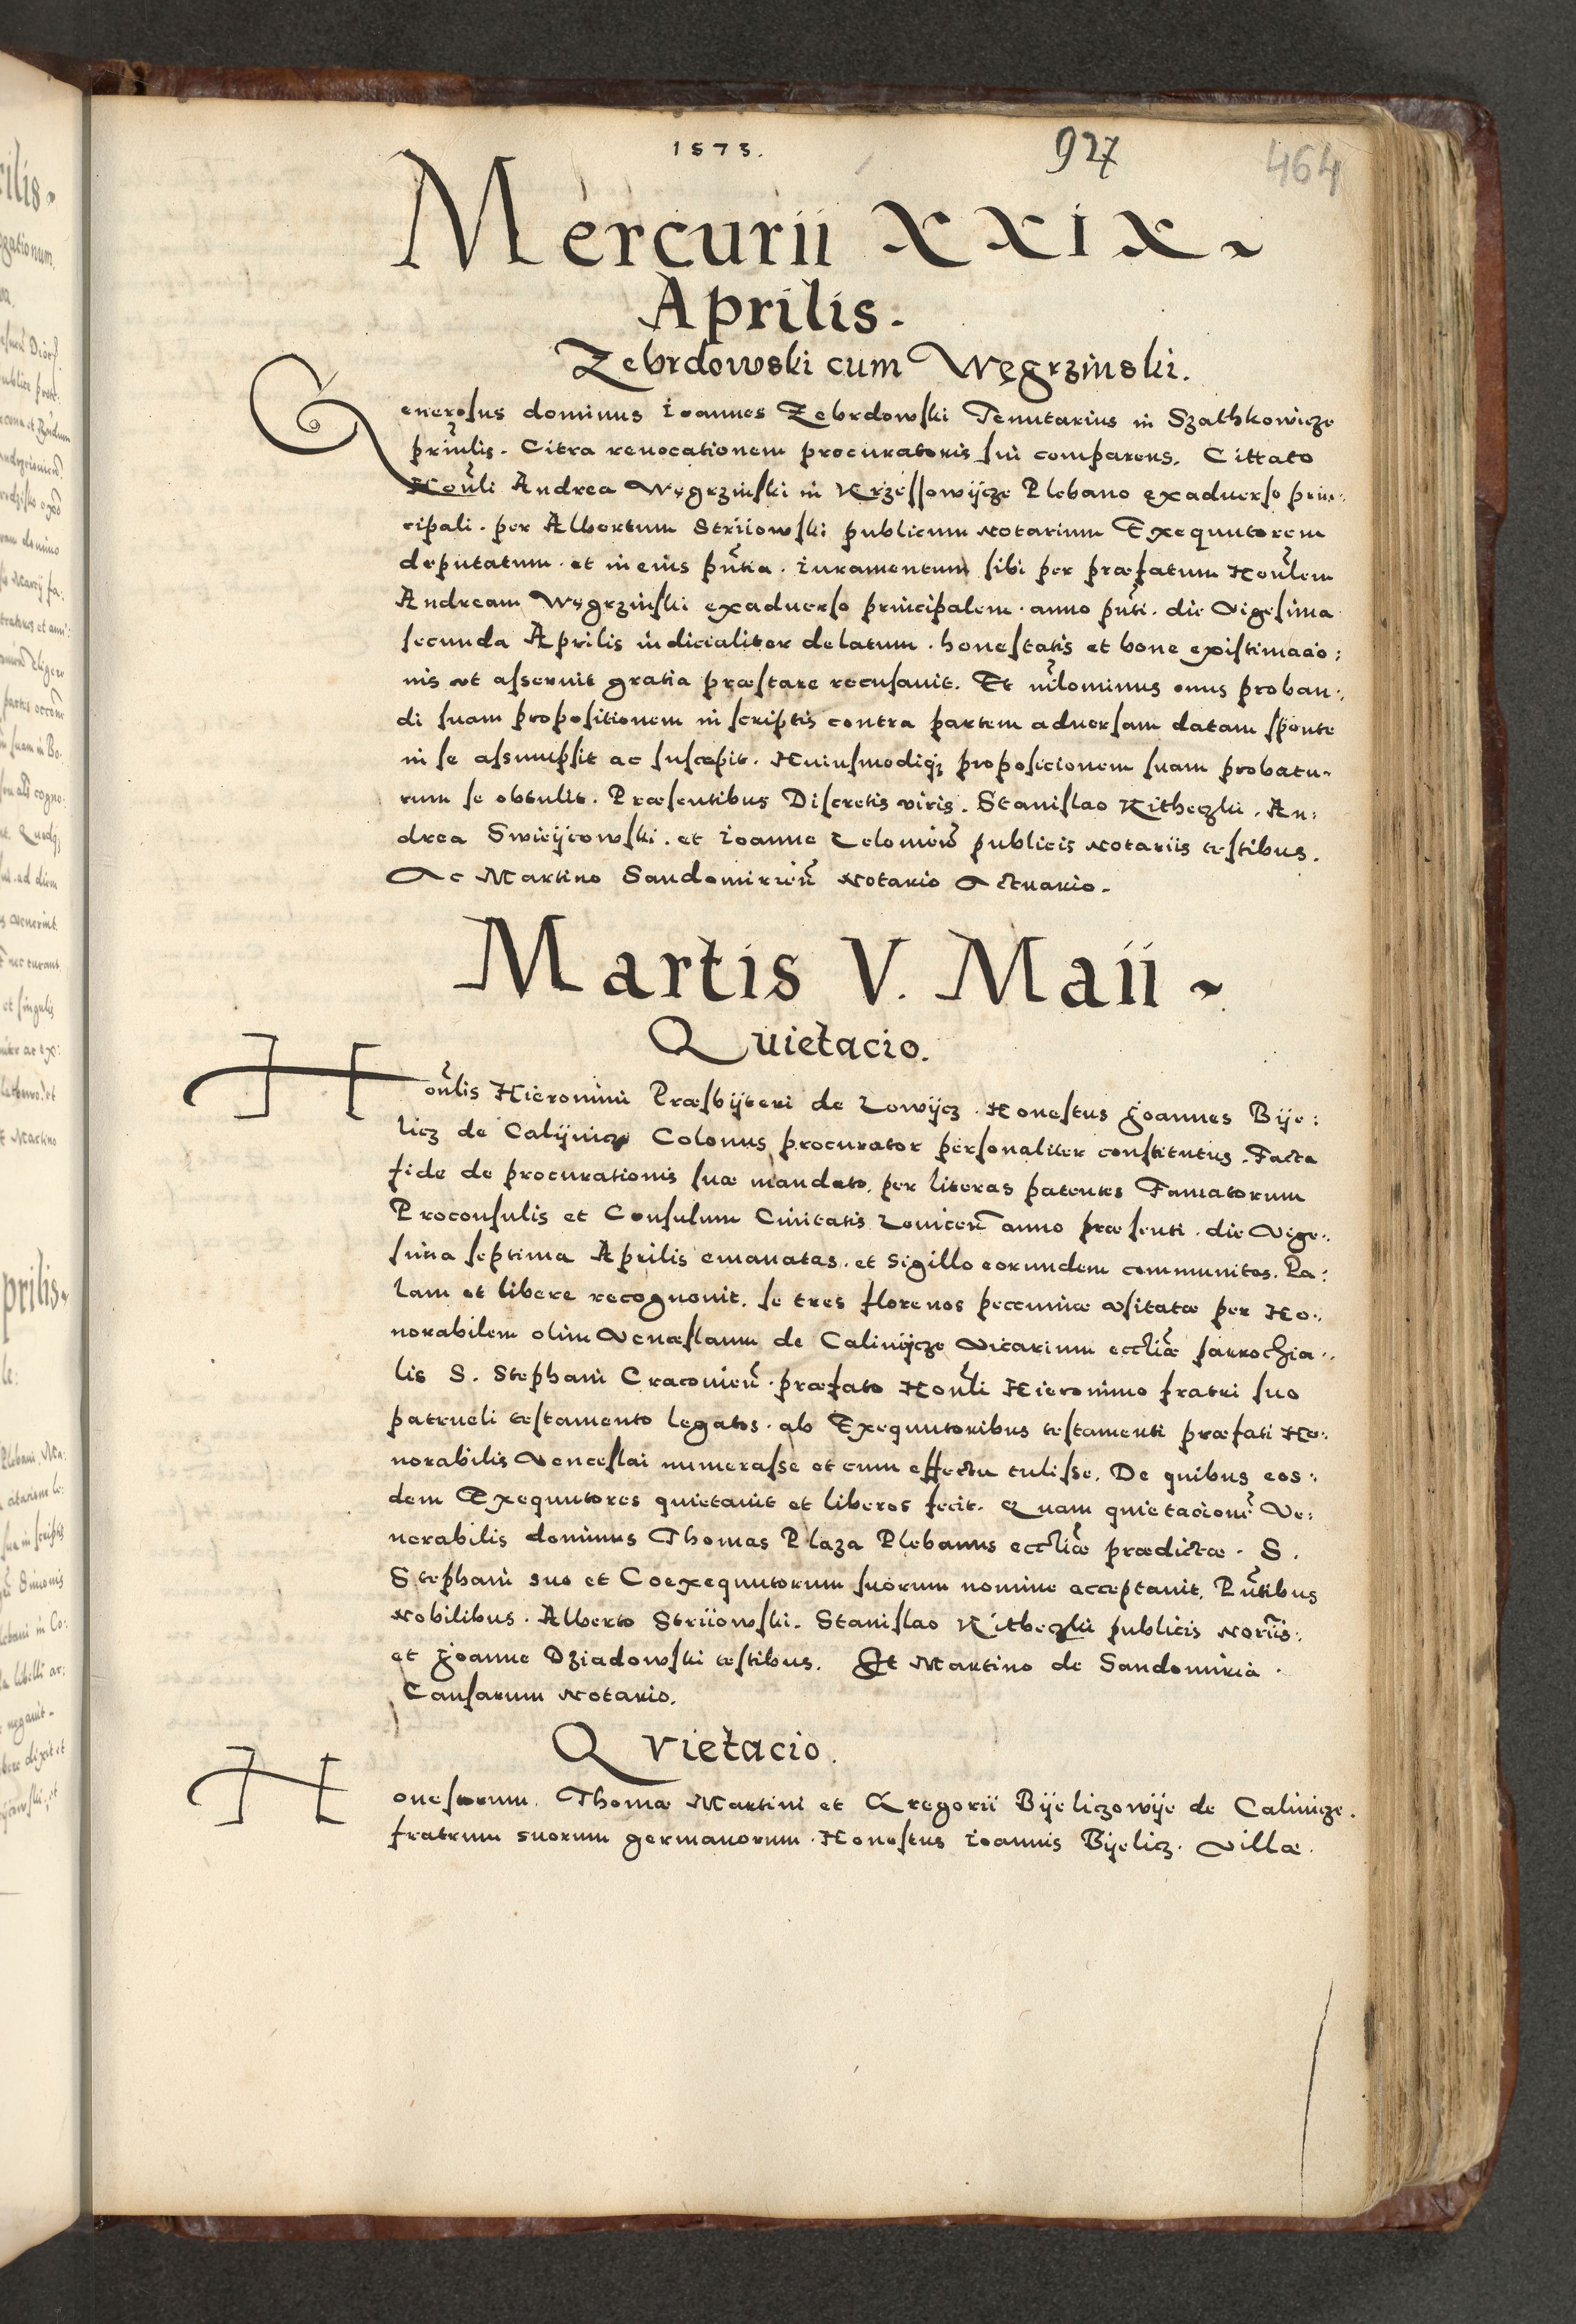 1573.
927
464
Mercurii XXIX
Aprilis.
Zebrdowski cum Węgrzinski.
Generosus dominus Ioannes Zebrdowski Tenutarius in Szathkowicze
prinlis. Citra reuocationem procuratoris sui comparens. Cittato
Honli Andrea Węgrzinski in Krzessowijcze Plebano exaduerso prin:
cipali. per Albertum Striiowski publicum Notarium Exequutorem
deputatum. et in eius pntia. iuramentum sibi per præfatum Honlem
Andream Węgrzinski exaduerso principalem. anno pnti. die Vigesima
secunda Aprilis iudicialiter delatum. honestatis et bone existimacio:
nis ut asseruit gratia præstare recusauit. Et nilominus onus proban:
di suam propositionem in scriptis contra partem aduersam datam sponte
in se assumpsit ac suscepit. Huiusmodiq; proposicionem suam probatu-
rum se obtulit. Præsentibus Discretis viris. Stanislao Kitheczki. An:
drea Swieijcowski. et Ioanne Zelonien publicis Notariis testibus.
Ac Martino Sandomirien Notario Actuario.
Martis V. Maii
Quietacio.
Honlis Hieronimi Præsbijteri de Lowijcz. Honestus Joannes Bije:
licz de Calijnicze Colonus procurator personaliter constitutus. Facta
fide de procurationis suæ mandato. per literas patentes Famatorum
Proconsulis et Consulum Ciuitatis Louicen anno præsenti. die Vige:
sima septima Aprilis emanatas. et sigillo eorundem communitas. Pa:
lam et libere recognouit. se tres florenos pecuniæ usitatæ per Ho:
norabilem olim Venceslaum de Calinijcze Vicarium eccliæ parrochia:
lis S. Stephani Cracouien. præfato Honli Hieronimo fratri suo
patrueli testamento legatos. ab Exequutoribus testamenti præfati Ho:
norabilis Venceslai numerasse et cum effectu tulisse. De quibus eos:
dem Exequutores quietauit et liberos fecit. Quam quietacione Ve:
nerabilis dominus Thomas Plaza Plebanus eccliæ prædictæ. S.
Stephani suo et Coexequutorum suorum nomine acceptauit. Pntibus
Nobilibus. Alberto Striiowski. Stanislao Kitheczki publicis Noriis:
et Joanne Dziadowski testibus. Et Martino de Sandomiria.
Causarum Notario.
Qvietacio.
Honestorum. Thomæ Martini et Gregorii Bijeliczowije de Calinicze.
fratrum suorum germanorum. Honestus Ioannis Bijelicz. Villæ.